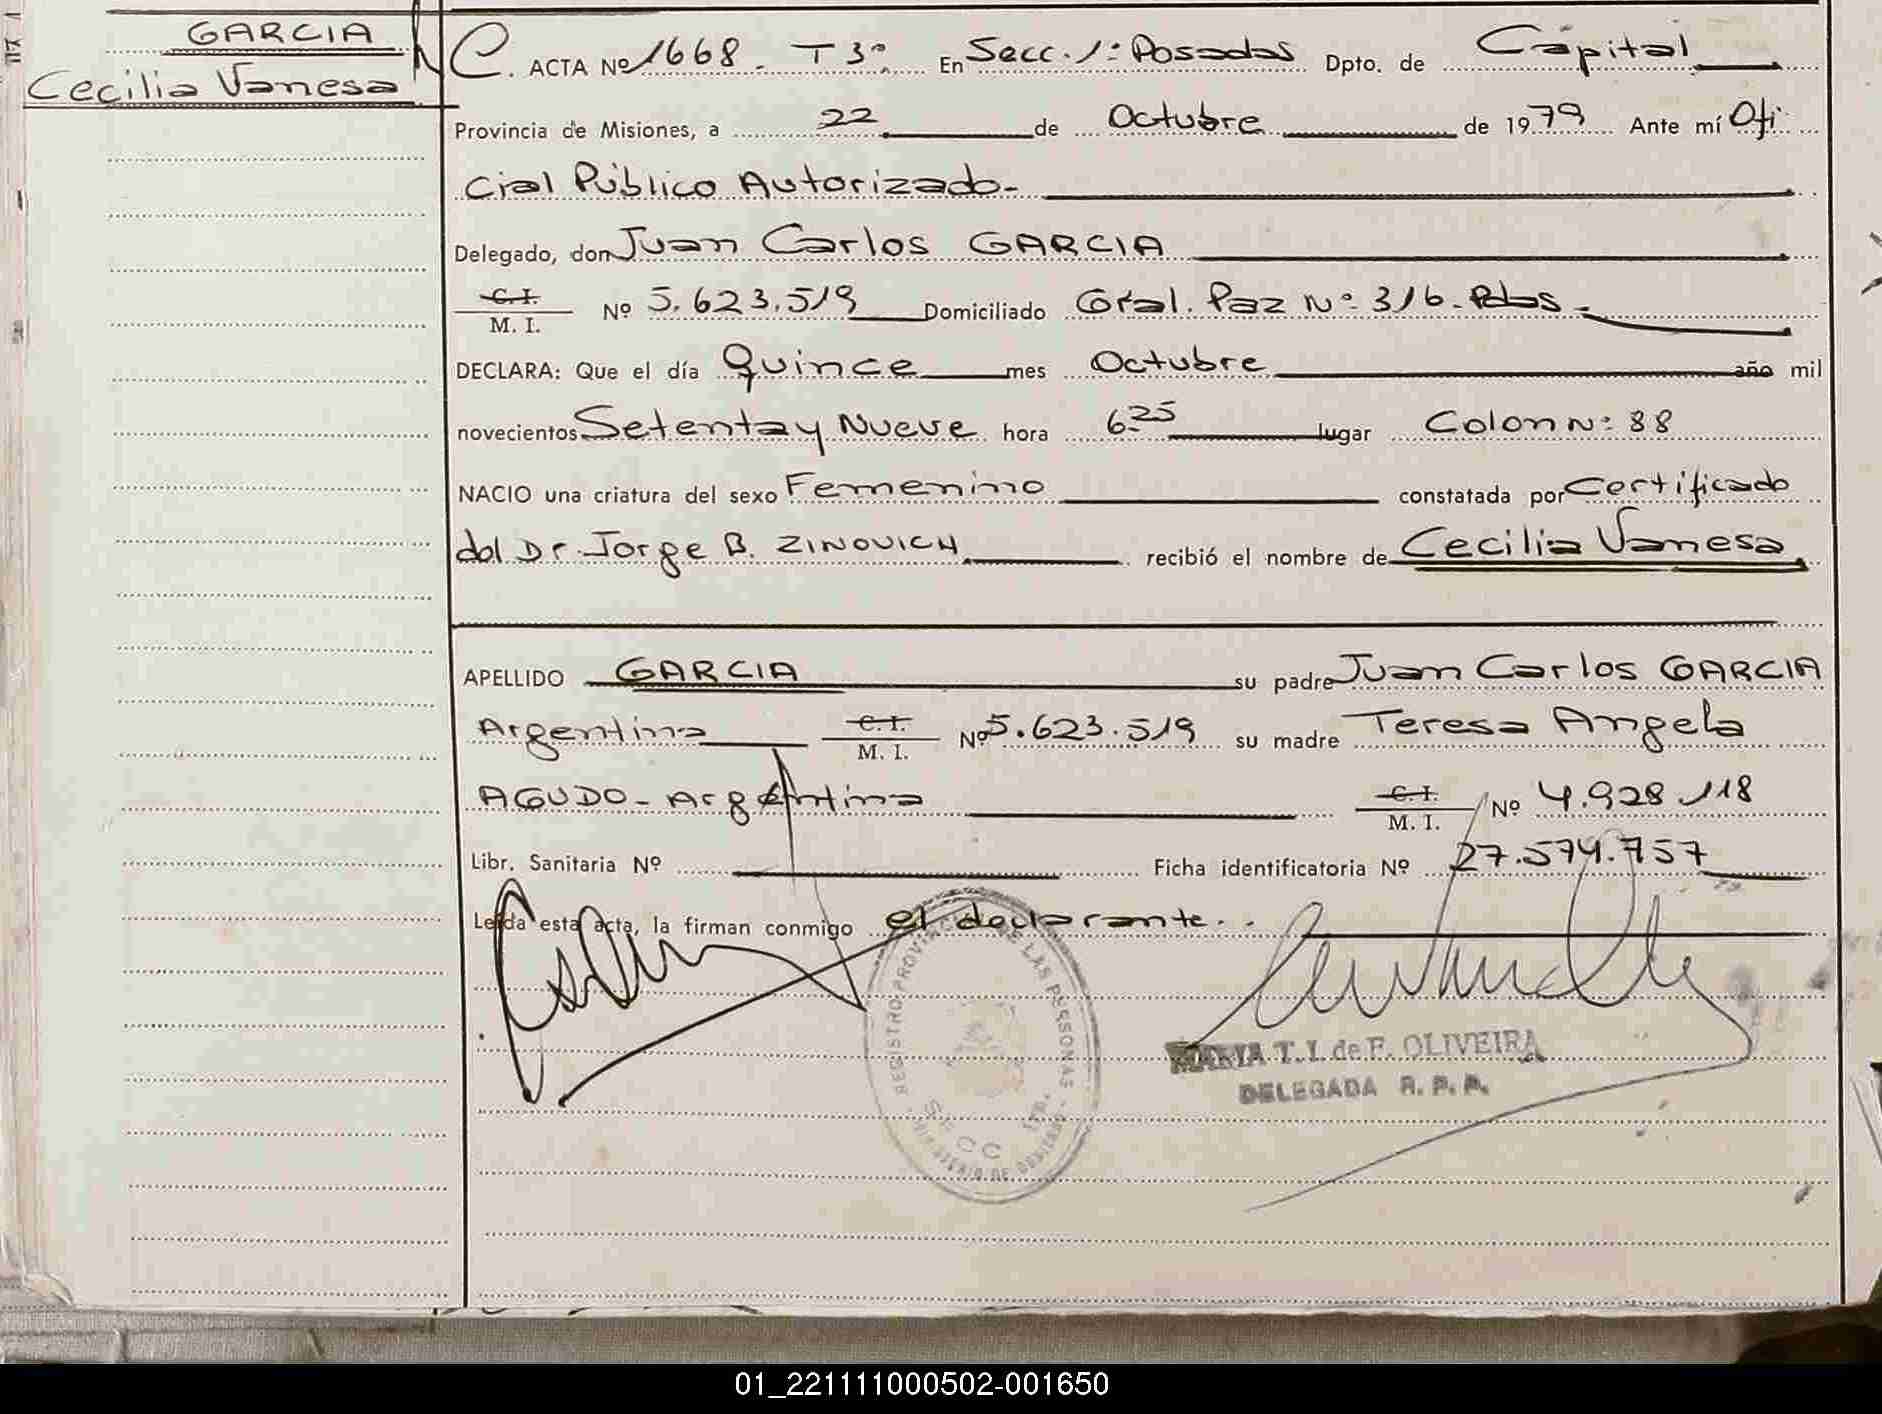 GARCIA
Cecilia Vanesa
C. ACTA Nº 1668. T 3º. En Secc. 1ª Posadas Dpto. de Capital
Provincia de Misiones, a 22 de Octubre de 1979 Ante mí Ofi
cial Público Autorizado-
Delegado, don Juan Carlos GARCIA
C. I.
M. I. Nº 5.623.519 Domiciliado Gral. Paz Nº 316-Pdas
DECLARA: Que el día Quince mes Octubre año mil
novecientos Setenta y Nueve hora 6 25 lugar Colon Nº 88
NACIO una criatura del sexo Femenino constatada por Certificado
del Dr. Jorge B. ZINOVICH recibió el nombre de Cecilia Vanesa
APELLIDO GARCIA su padre Juan Carlos GARCIA
Argentino C. I.
M. I. Nº 5.623.519 su madre Teresa Angela
AGUDO- Argentina C. I.
M. I. Nº 4.928.118
Libr. Sanitaria Nº Ficha identificatoria Nº 27.574.757
Leída esta acta, la firman conmigo el declarante.
REGISTRO PROVINCIAL DE LAS PERSONAS
SECC 1ra.
MINISTERIO DE GOBIERNO
MARIA T. I. de F. OLIVEIRA
DELEGADA R. P. P.
01_221111000502-001650